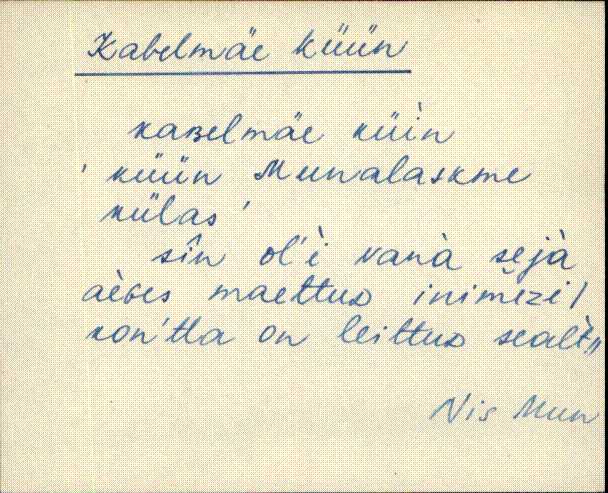 Kabelmäe küün
kaʙelmäe küìn
' küün Munalaskme
külas '
sîn ol'ì vanà sejà
aèɢes maettuᴅ inimèzi /
kon'tta on leittuᴅ sealt̀"
Nis Mun